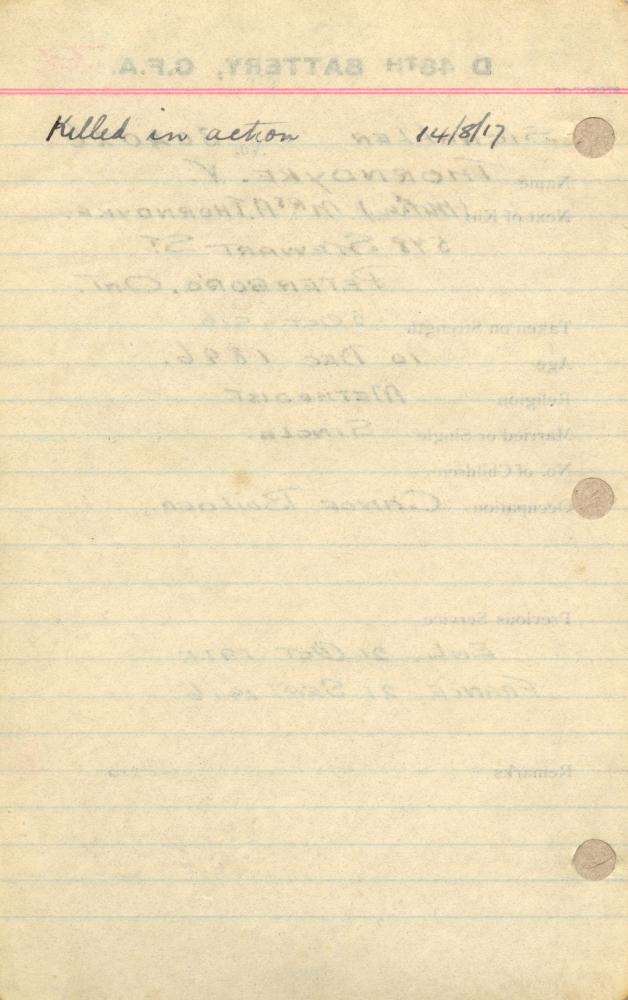 Killed in action 14/8/17
D 48TH BATTERY, C.F.A.
Name THORNDYKE. V.
Next of Kin MRS A. THORNDYKE.
578 STEWART ST
PETERBORO, ONT.
Taken on Strength
Age 10 DEC 1896.
Religion METHODIST
Married or Single SINGLE.
No. of Children
Occupation CANOE BUILDER.
Previous Service
ENG. 21 OCT
FRANCE 21
Remarks